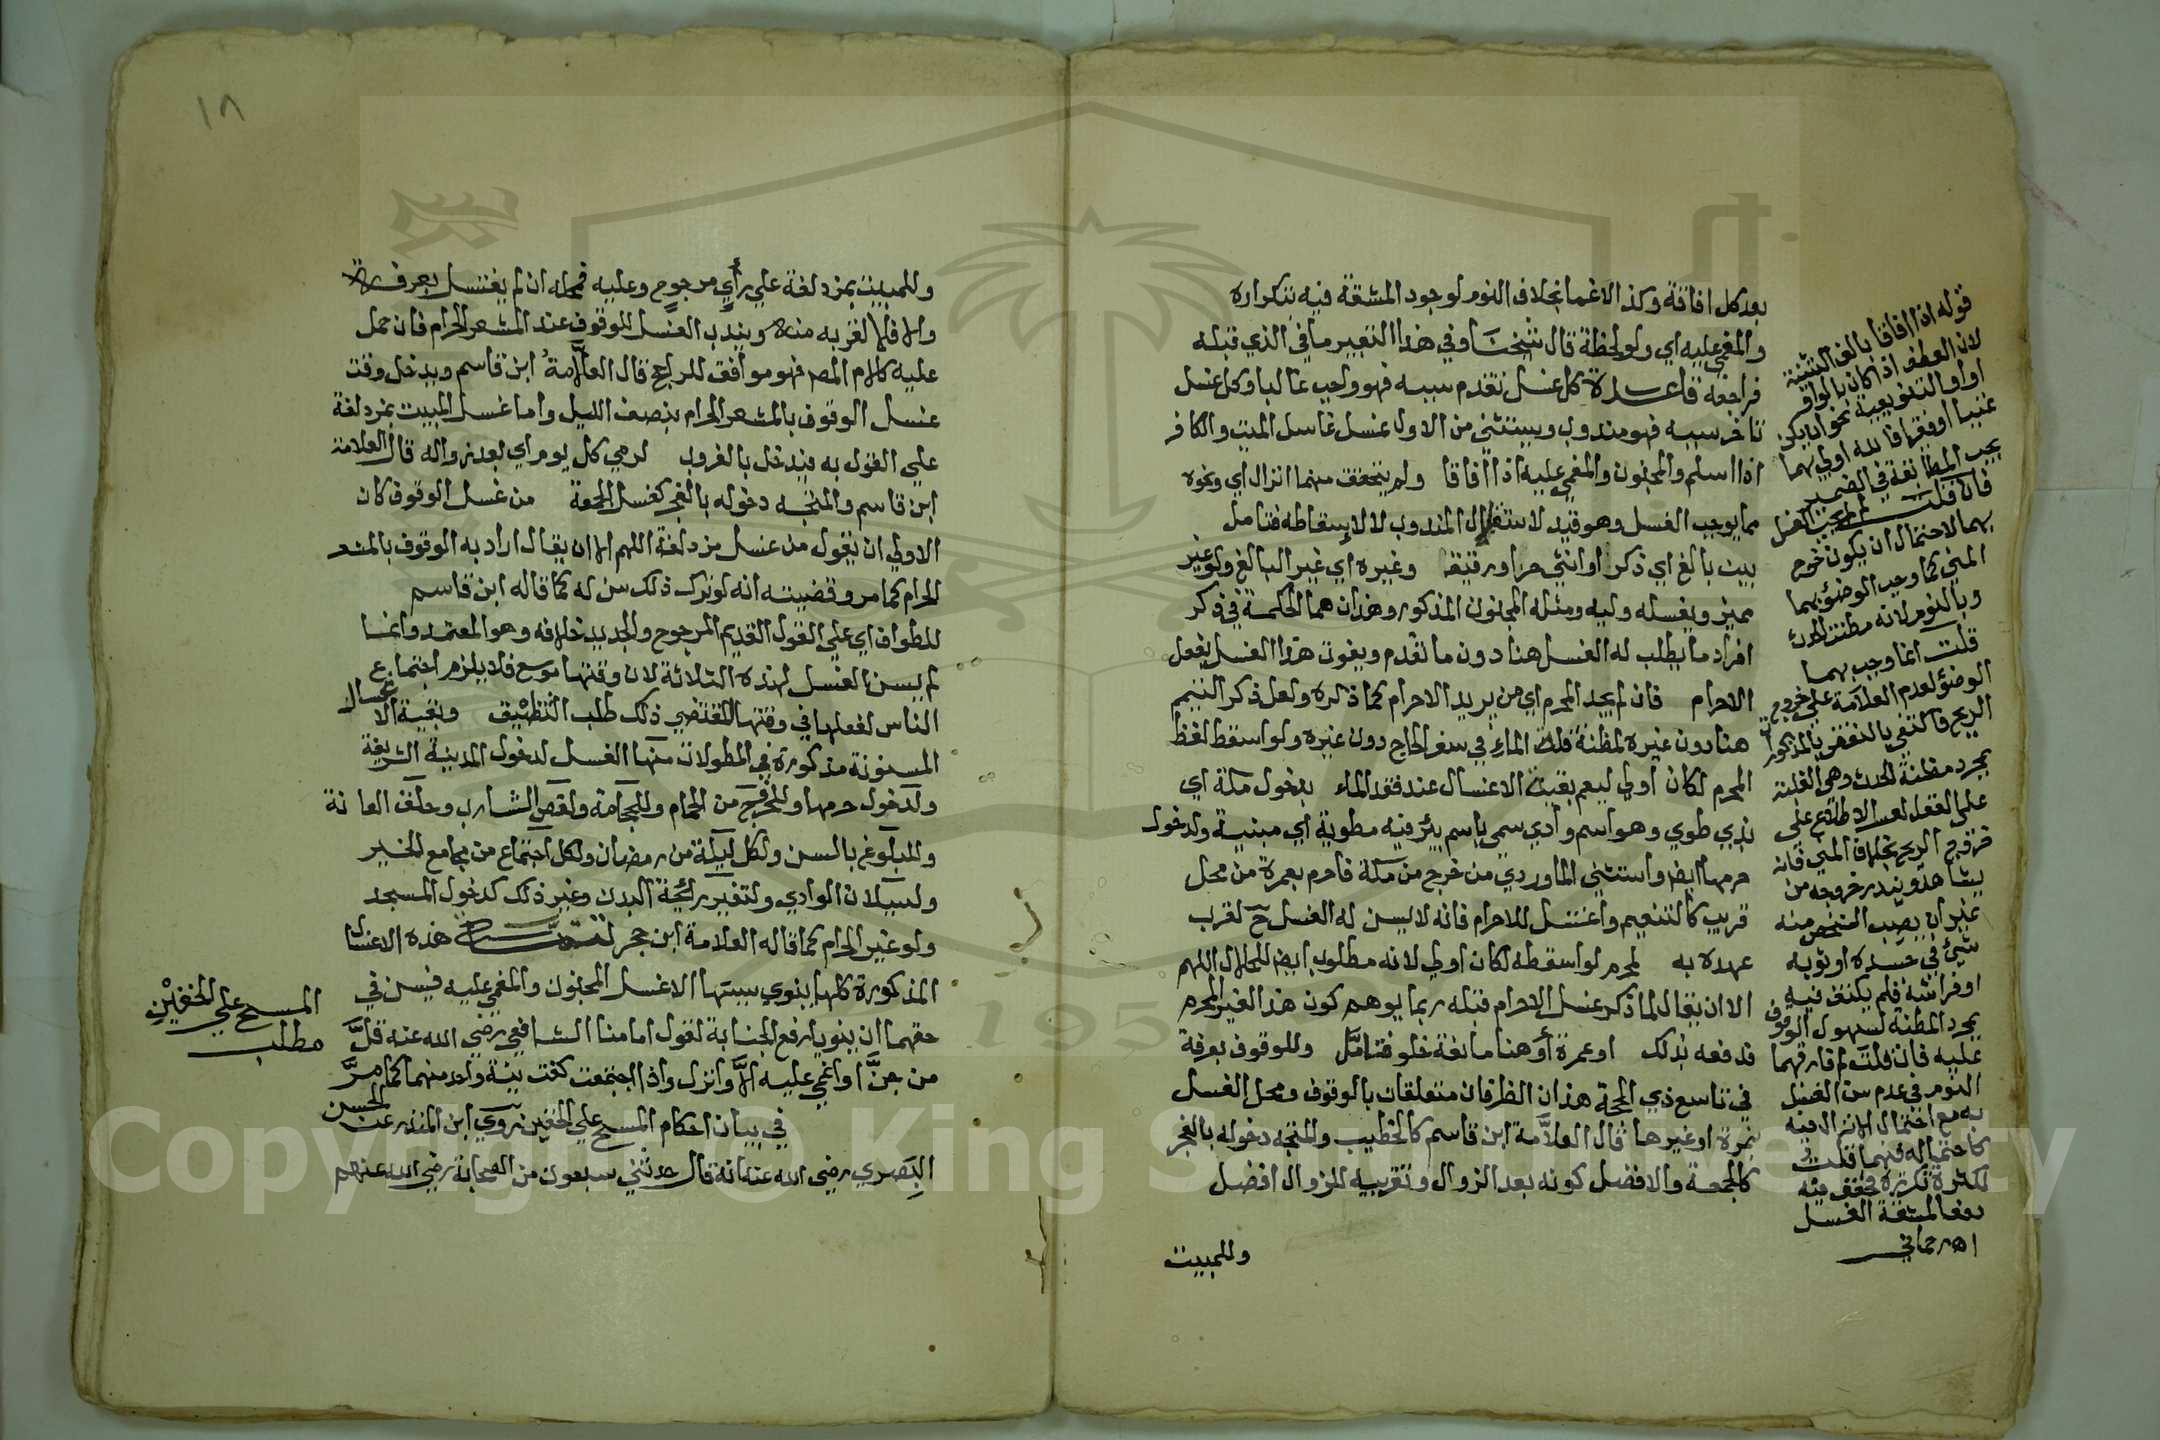 بعد كل افاقة وكذا الاغما بخلاف النوم لوجود المشقة فيه بتكراره
والمغمي عليه اي ولو لحظة قال شيخنا وفي هذا التعبير ما في الذي قبله
فراجعه قاعدة كل غسل تقدم سببه فهو واجب غالبا وكل غسل
تاخر سببه فهو مندوب ويستثني من الاول غسل غاسل الميت والكافر
اذا اسلم والمجنون والمغمي عليه اذا افاقا ولم يتحقق منهما انزال اي ونحوه
مما يوجب الغسل وهو قيد لاستقلال المندوب لا لاسقاطه فتامل
بيت بالغ اي ذكر او انثي حر او رقيق وغيره اي غير البالغ ولو غير
مميز ويغسله وليه ومثله المجنون المذكور وهذان هما الحكمة في ذكر
افراد ما يطلب له الغسل هنا دون ما تقدم ويفوت هذا الغسل بفعل
الاحرام فان لم يجد المحرم اي من يريد الاحرام كما ذكره ولعل ذكر التيمم
هنا دون غيره لمظنة قلة الماء في سفر الحاج دون غيره ولو اسقط لفظ
المحرم لكان اولي ليعم بقية الاغسال عند فقد الماء بدخول مكة اي
بذي طوي وهو اسم وادي سمي باسم بئر فيه مطوية اي مبنية ولدخول
حرمها ايضا واستثني الماوردي من خرج من مكة فاحرم بعمرة من محل
قريب كالتنعيم واغتسل للاحرام فانه لا يسن له الغسل ح لقرب
عهده به لمحرم لو اسقطه لكان اولي لانه مطلوب ايض للحلال اللهم
الا ان يقال لما ذكر غسل الاحرام قبله ربما يوهم كون هذا لغير المحرم
فدفعه بذلك او عمرة أو هنا مانعة خلو فتامل وللوقوف بعرفة
في تاسع ذي الحجة هذان الظرفان متعلقات بالوقوف ومحل الغسل
نمرة او غيرها قال العلامة ابن قاسم كالخطيب والمتجه دخوله بالفجر
كالجمعة والافضل كونه بعد الزوال وتقريبه للزوال افضل
وللمبيت
قوله اذا افاقا بالف التثنية
لان العطف اذا كان بالواو
او او التنويعية نحو ان يكن
غنيا او فقيرا فالله اولي بهما
يجب المطابقة في الضمير
فان قلت لم لم يجب الغسل
بهما لاحتمال ان يكون خرج
المني كما وجب الوضؤ بهما
وبالنوم لانه مظنة الحدث
قلت انما وجب بهما
الوضؤ لعدم العلامة علي خروج
الريح فاكتفي بالنقض بالمذكورات
بمجرد مظنة الحدث وهي الغلبة
علي العقل لعسر الاطلاع علي
خروج الريح بخلاف المني فانه
يشاهد ويندر خروجه من
غير ان يصب الشخص منه
شئ في جسده او ثوبه
او فراشه فلم يكتف فيه
بمجرد المظنة لسهول الوقوف
عليه فان قلت لم فارقهما
النوم في عدم سن الغسل
به مع احتمال الانزال فيه
كاحتماله فيهما قلت
لكثرة تكرره فخفف فيه
دفعا لمشقة الغسل
اهـ رحماني
١٨
وللمبيت بمزدلفة علي رأي مرجوح وعليه فمحله ان لم يغتسل بعرفة
والا فلا لقربه منه ويندب الغسل للوقوف عند المشعر الحرام فان حمل
عليه كلام المص فهو موافق للراجح قال العلامة ابن قاسم ويدخل وقت
غسل الوقوف بالمشعر الحرام بنصف الليل واما غسل المبيت بمزدلفة
علي القول به فيدخل بالغروب لرمي كل يوم اي بعد زواله قال العلامة
ابن قاسم والمتجه دخوله بالفجر كغسل الجمعة من غسل الوقوف كان
الاولي ان يقول من غسل مزدلفة اللهم الا ان يقال اراد به الوقوف بالمشعر
الحرام كما مر وقضيته انه لو ترك ذلك سن له كما قاله ابن قاسم
للطواف اي علي القول القديم المرجوح والجديد خلافه وهو المعتمد وانما
لم يسن الغسل لهذه الثلاثة لان وقتها موسع فلا يلزم اجتماع
الناس لفعلها في وقتها المقتضي ذلك طلب التظيق وبقية الاغسال
المسنونة مذكورة في المطولات منها الغسل لدخول المدينة الشريفة
ولدخول حرمها وللخروج من الحمام وللحجامة ولقص الشارب وحلق العانة
وللبلوغ بالسن ولكل ليلة من رمضان ولكل اجتماع من مجامع الخير
ولسيلان الوادي ولتغير رائحة البدن وغير ذلك كدخول المسجد
ولو غير الحرام كما قاله العلامة ابن حجر تتمة هذه الاغسال
المذكورة كلها ينوي سببها الا غسل المجنون والمغمي عليه فيسن في
حقهما ان ينويا رفع الجنابة لقول امامنا الشافعي رضي الله عنه قلَّ
من جنَّ او اغمي عليه الاَّ وانزل واذا اجتمعت كفت نية واحد منهما كما مرَّ
في بيان احكام المسح علي الخفين روي ابن المنذر عن الحسن
البصري رضي الله عنه انه قال حدثني سبعون من الصحابة رضي الله عنهم
المسح علي الخفين
مطلب
Copyright © King Saud University
1957